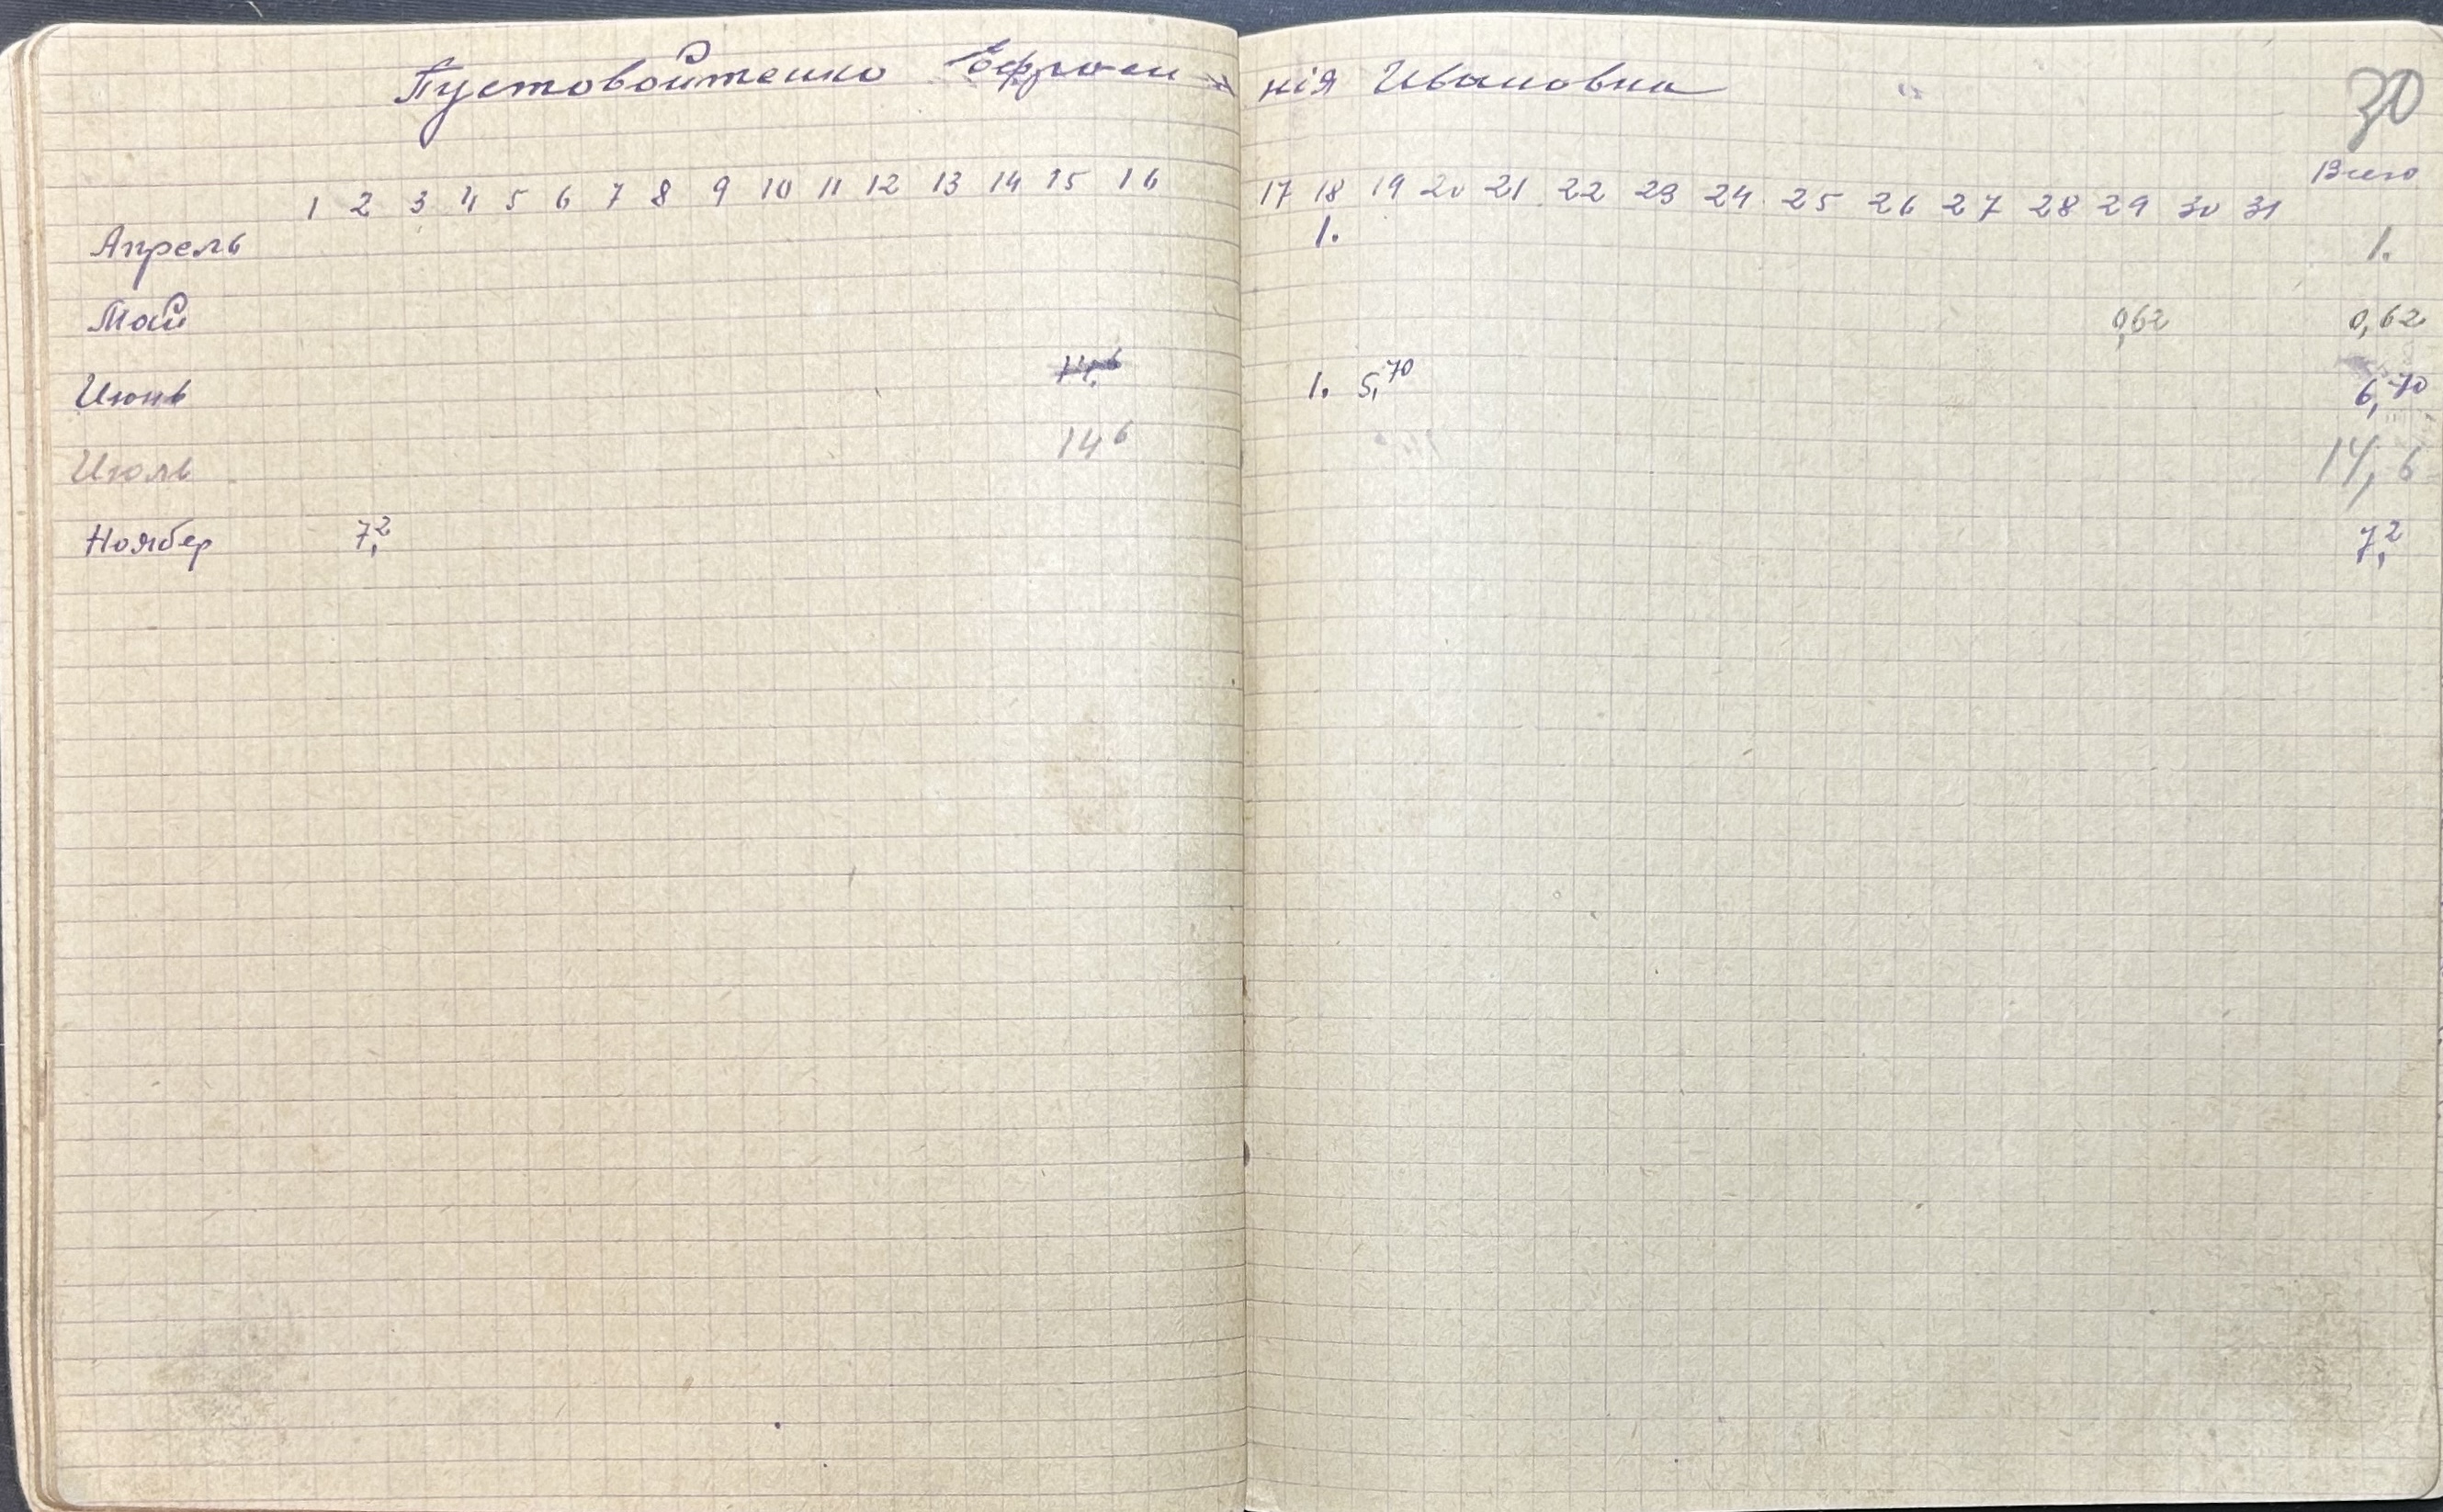 Пустовойтенко Ефросинія Ивановна
30
1 2 3 4 5 6 7 8 9 10 11 12 13 14 15 16 17 18 19 20 21 22 23 24 25 26 27 28 29 30 31 Всего
Апрель 1. 1.
Май 0,62 0,62
Июнь 1. 5,70 6,70
Июль 14 6 14,6
Ноябер 7,2 7,2